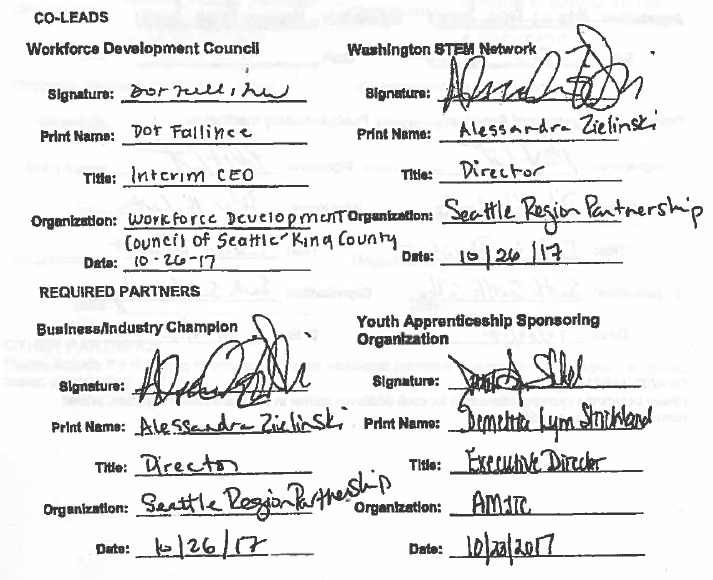 CO-LEADS
Workforce Development Council
Signature:
Print Name: Dot Fallihee
Title: Interim CEO
Organization: Workforce Development
Council of Seattle-King County
Date: 10-26-17
Washington STEM Network
Signature:
Print Name: Alessandra Zielinski
Title: Director
Organization: Seattle Region Partnership
Date: 10/26/17
REQUIRED PARTNERS
Business/Industry Champion
Signature:
Print Name: Alessandra Zielinski
Title: Director
Organization: Seattle Region Partnership
Date: 10/26/17
Youth Apprenticeship Sponsoring
Organization
Signature:
Print Name: Demetria Lynn Strickland
Title: Executive Director
Organization: AMJTC
Date: 10/23/2017